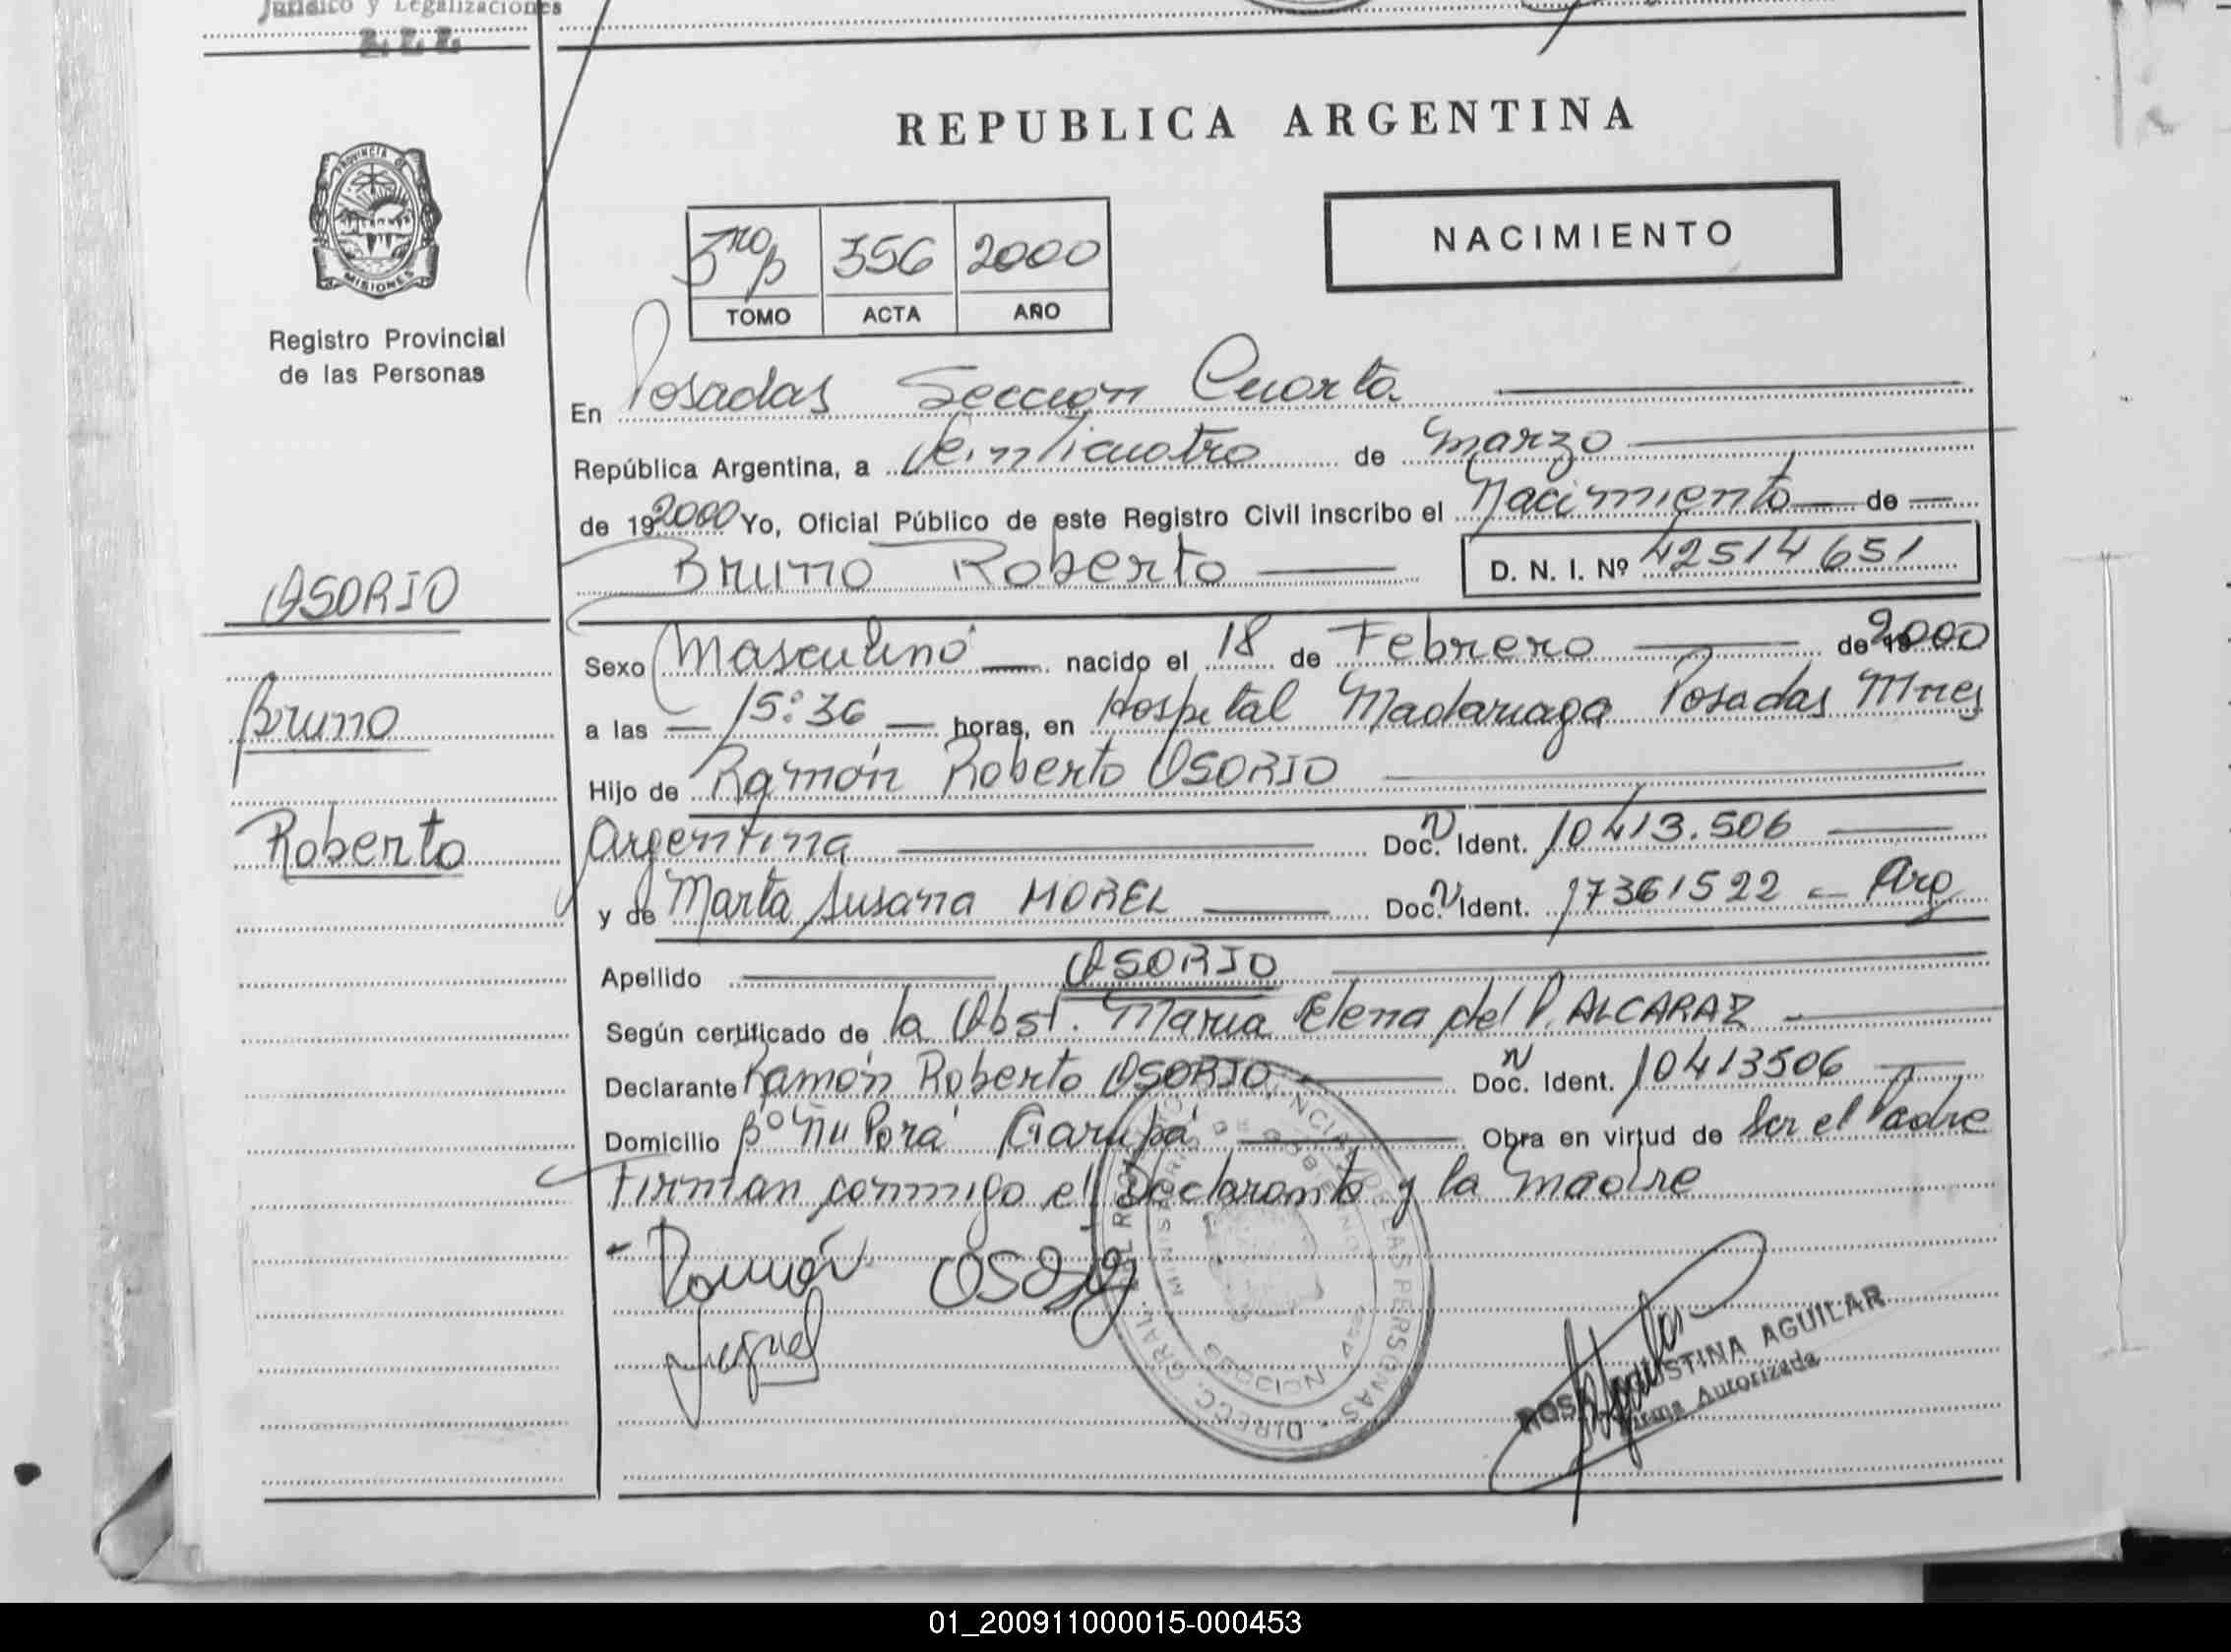 Jurídico y Legalizaciones
R. P. P.
REPUBLICA ARGENTINA
PROVINCIA DE
MISIONES
Registro Provincial
de las Personas
NACIMIENTO
3ro p 356 2000
TOMO ACTA AÑO
En Posadas Sección Cuarta
República Argentina, a Veinticuatro de marzo
de 19 2000 Yo, Oficial Público de este Registro Civil inscribo el Nacimiento de
Bruno Roberto D. N. I. Nº 42514651
OSORIO
Bruno
Roberto
Sexo Masculino nacido el 18 de Febrero de 19 2000
a las 15:36 horas, en Hospital Madariaga Posadas Mnes
Hijo de Ramón Roberto OSORIO
Argentina Doc. N Ident. 10413.506
y de Marta Susana MOREL Doc. N Ident. 17361522 - Arg
Apellido OSORIO
Según certificado de la Obst. Maria Elena del P. ALCARAZ
Declarante Ramón Roberto OSORIO Doc. N Ident. 10413506
Domicilio Bº Ñu Porá Garupá Obra en virtud de Ser el Padre
Firman conmigo el Declarante y la madre
Ramón Osorio
ROSA AGUSTINA AGUILAR
Firma Autorizada
01_200911000015-000453